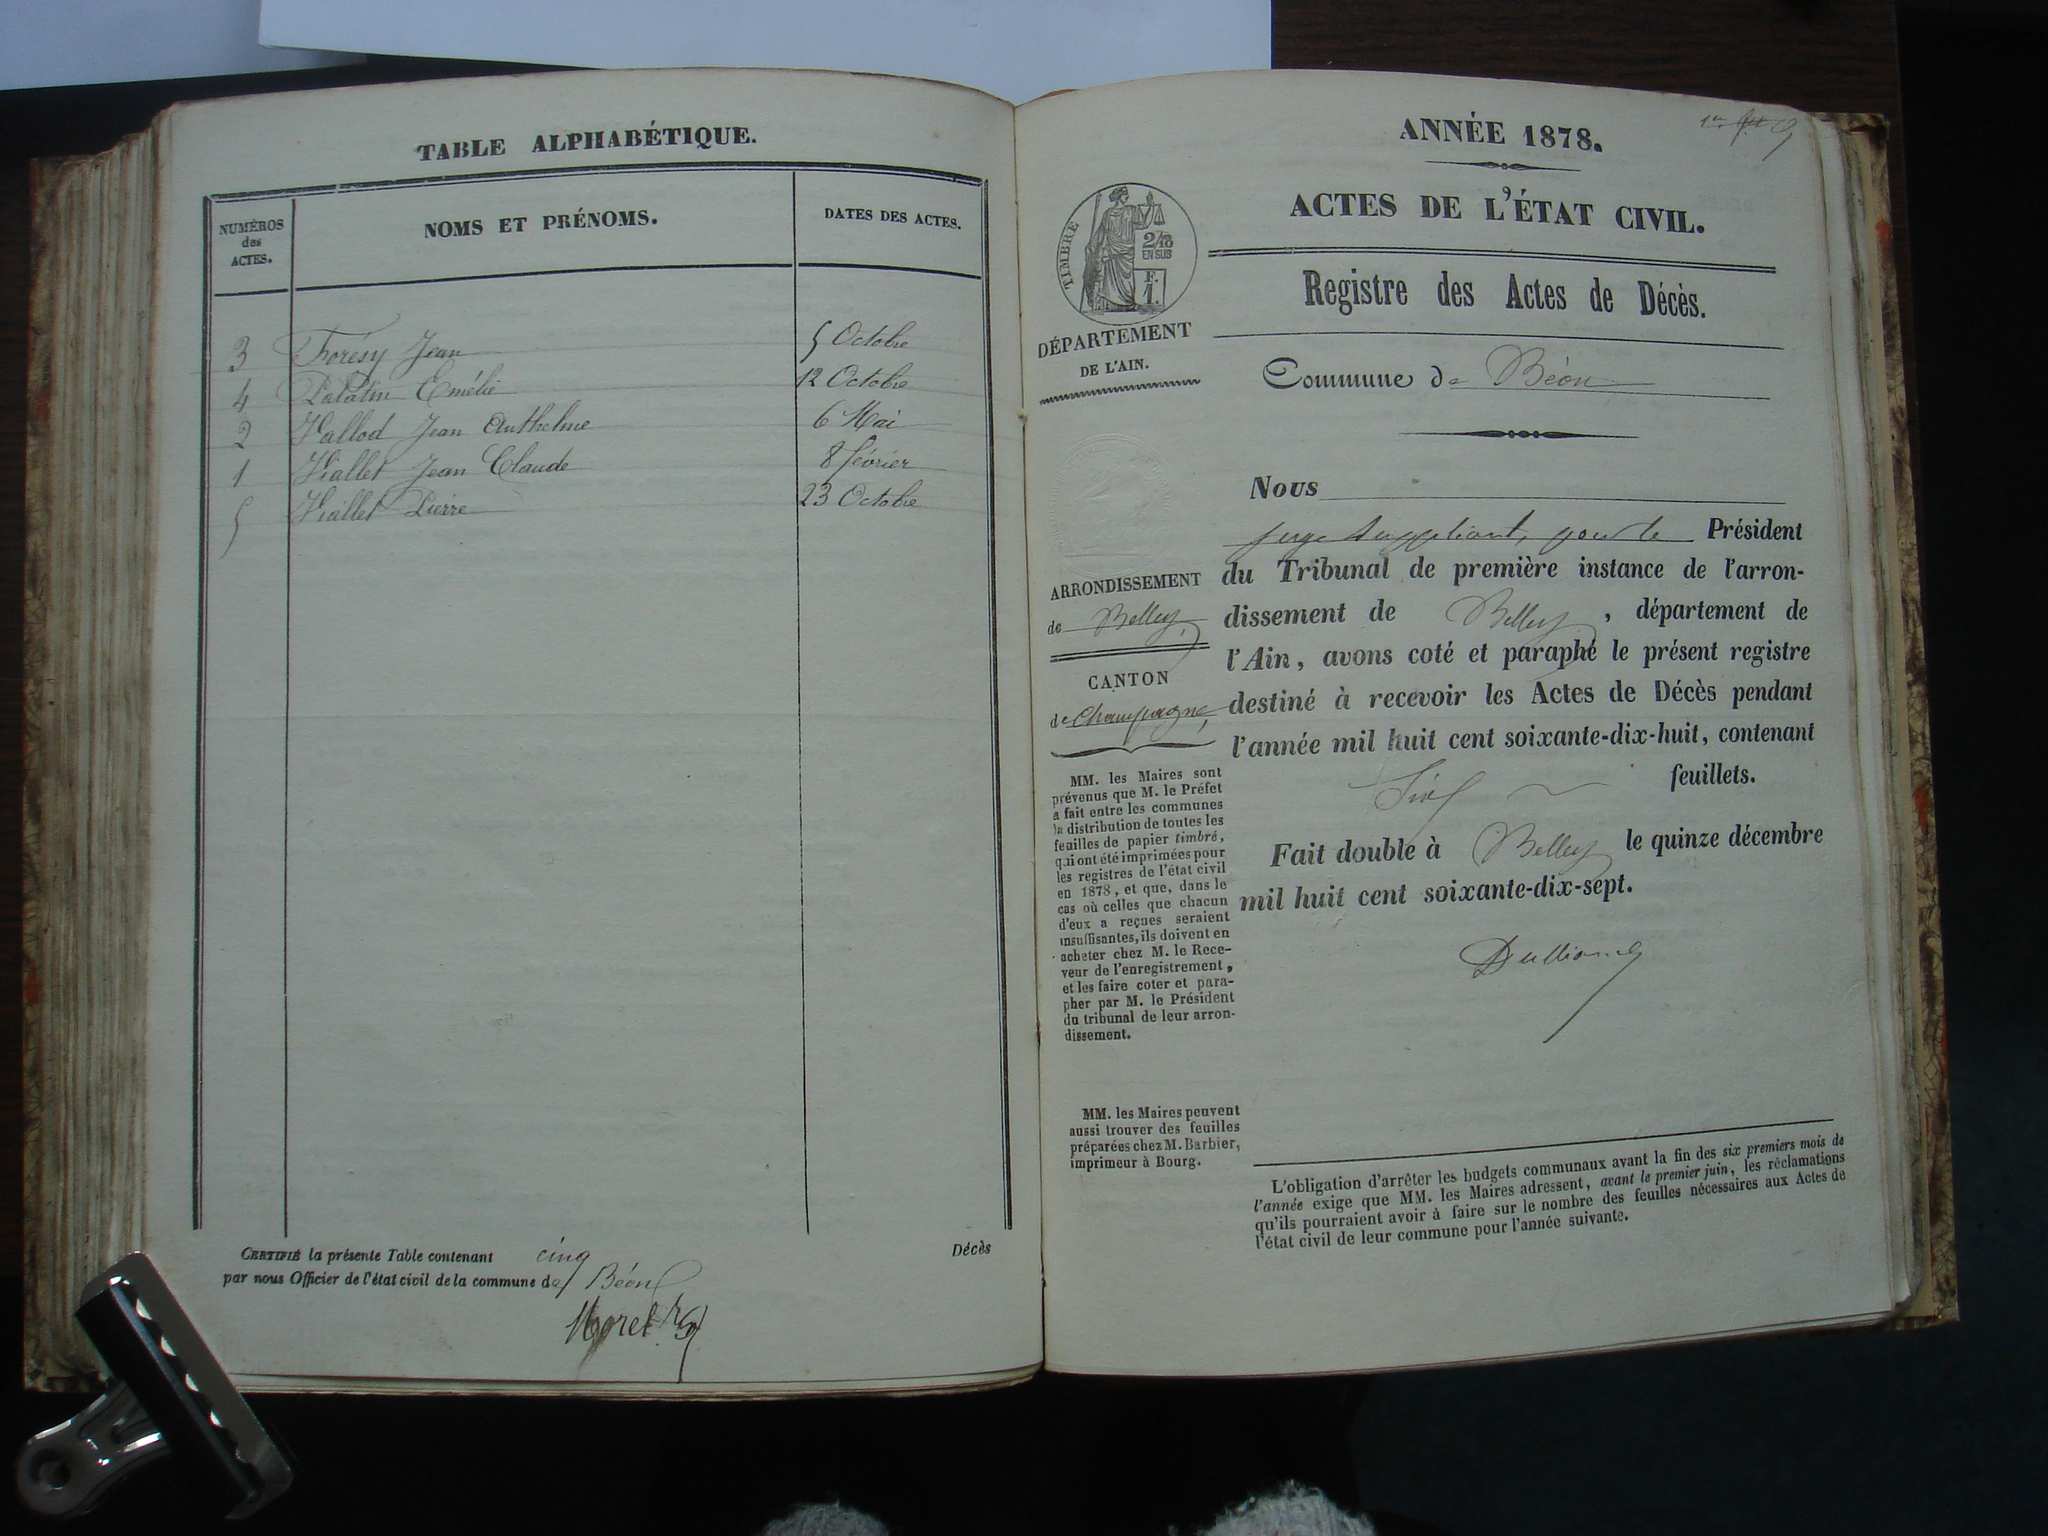 TABLE ALPHABÉTIQUE.
NUMÉROS
des
ACTES.
NOMS ET PRÉNOMS.
DATES DES ACTES.
3 Forésy Jean 5 Octobre
4 Palatin Emélie 12 Octobre
2 Vallod Jean Anthelme 6 Mai
1 Viallet Jean Claude 8 février
5 Viallet Pierre 23 Octobre
CERTIFIÉ la présente Table contenant cinq Décès
par nous Officier de l'état civil de la commune de Béon
Morel
ANNÉE 1878.
ACTES DE L'ÉTAT CIVIL.
Registre des Actes de Décès.
TIMBRE
2/10
EN SUS
F.
1.
DÉPARTEMENT
DE L'AIN.
Commune de Béon
Nous
juge suppléant, pour le Président
du Tribunal de première instance de l'arron-
dissement de Belley, département de
l'Ain, avons coté et paraphé le présent registre
destiné à recevoir les Actes de Décès pendant
l'année mil huit cent soixante-dix-huit, contenant
feuillets.
Fait double à Belley le quinze décembre
mil huit cent soixante-dix-sept.
ARRONDISSEMENT
de Belley
CANTON
de Champagne
MM. les Maires sont
prévenus que M. le Préfet
a fait entre les communes
la distribution de toutes les
feuilles de papier timbré,
qui ont été imprimées pour
les registres de l'état civil
en 1878, et que, dans le
cas où celles que chacun
d'eux a reçues seraient
insuffisantes, ils doivent en
acheter chez M. le Rece-
veur de l'enregistrement,
et les faire coter et para-
pher par M. le Président
du tribunal de leur arron-
dissement.
MM. les Maires peuvent
aussi trouver des feuilles
préparées chez M. Barbier,
imprimeur à Bourg.
L'obligation d'arrêter les budgets communaux avant la fin des six premiers mois de
l'année exige que MM. les Maires adressent, avant le premier juin, les réclamations
qu'ils pourraient avoir à faire sur le nombre des feuilles nécessaires aux Actes de
l'état civil de leur commune pour l'année suivante.